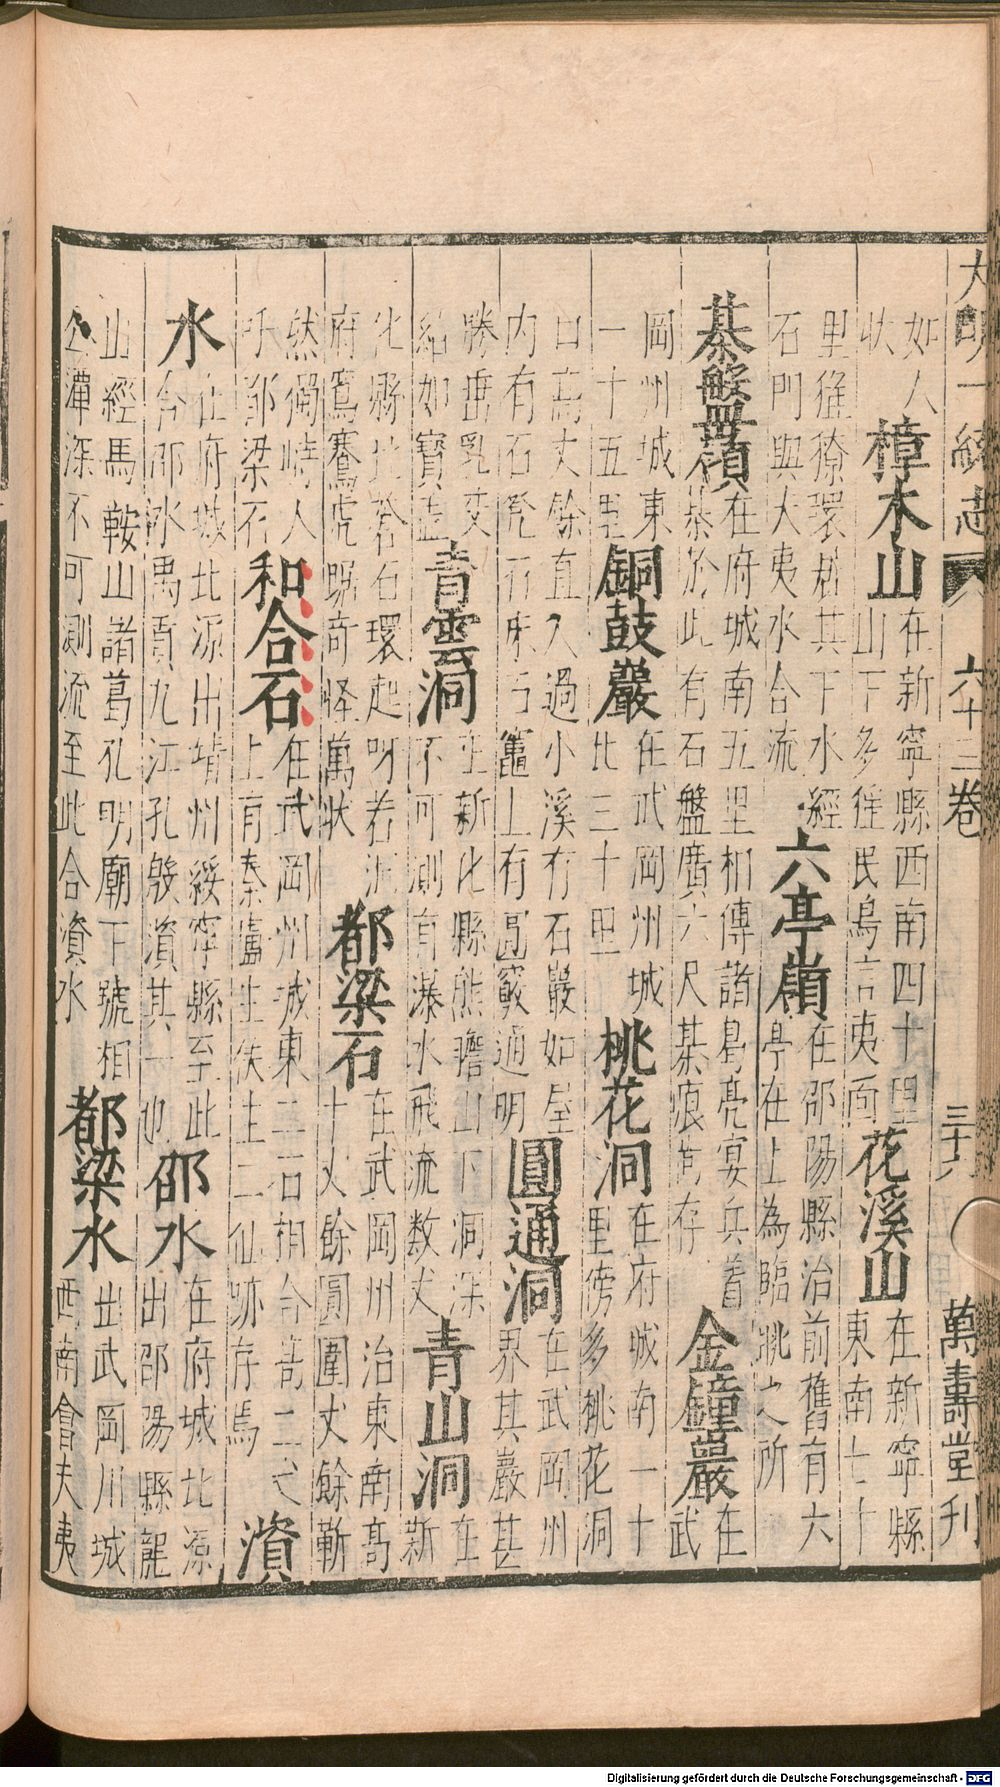 大明一統志 六十三卷 三十八 萬壽堂刊
如人
狀
樟木山
在新寧縣西南四十里
山下多徭民鳥言夷面
花溪山
在新寧縣
東南七十
里徭獠環居其下水經
石門與大夷水合流
六亭嶺
在邵陽縣治前舊有六
亭在上為臨眺之所
棊盤嶺
在府城南五里相傳諸葛亮宴兵着
棊於此有石盤廣六尺棊痕尚存
金鐘巖
在
武
岡州城東
一十五里
銅鼓巖
在武岡州城
北三十里
桃花洞
在府城南一十
里傍多桃花洞
口高丈餘直入過小溪有石巖如屋
内有石凳石床石竈上有圓竅通明
圓通洞
在武岡州
界其巖甚
勝垂乳交
結如寶盖
青雲洞
在新化縣熊膽山下洞深
不可測有瀑水飛流数丈
青山洞
在
新
化縣北蒼石環起呀若洞
府鸞騫虎踞奇怪萬狀
都梁石
在武岡州治東南高
十丈餘圓圍丈餘嶄
然獨峙人
呼都梁石
和合石
在武岡州城東二石相合高二丈
上有秦盧生侯生二仙跡存焉
澬
水
在府城北源出靖州綏寧縣至此
合邵水禹貢九江孔殷澬其一也
邵水
在府城北源
出邵陽縣龍
山經馬鞍山諸葛孔明廟下號相
公潭深不可測流至此合澬水
都梁水
出武岡州城
西南會夫夷
Digitalisierung gefördert durch die Deutsche Forschungsgemeinschaft - DFG